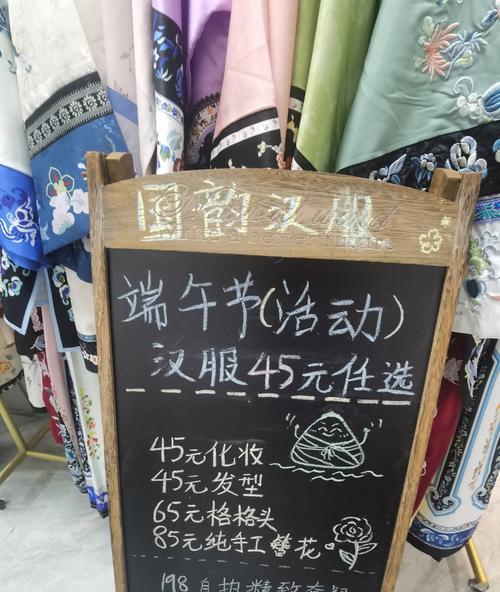 国韵汉服
端午节(活动)
汉服45元任选
45元化妆
45元发型
65元格格头
85元纯手工簪花
198自拍精致套餐